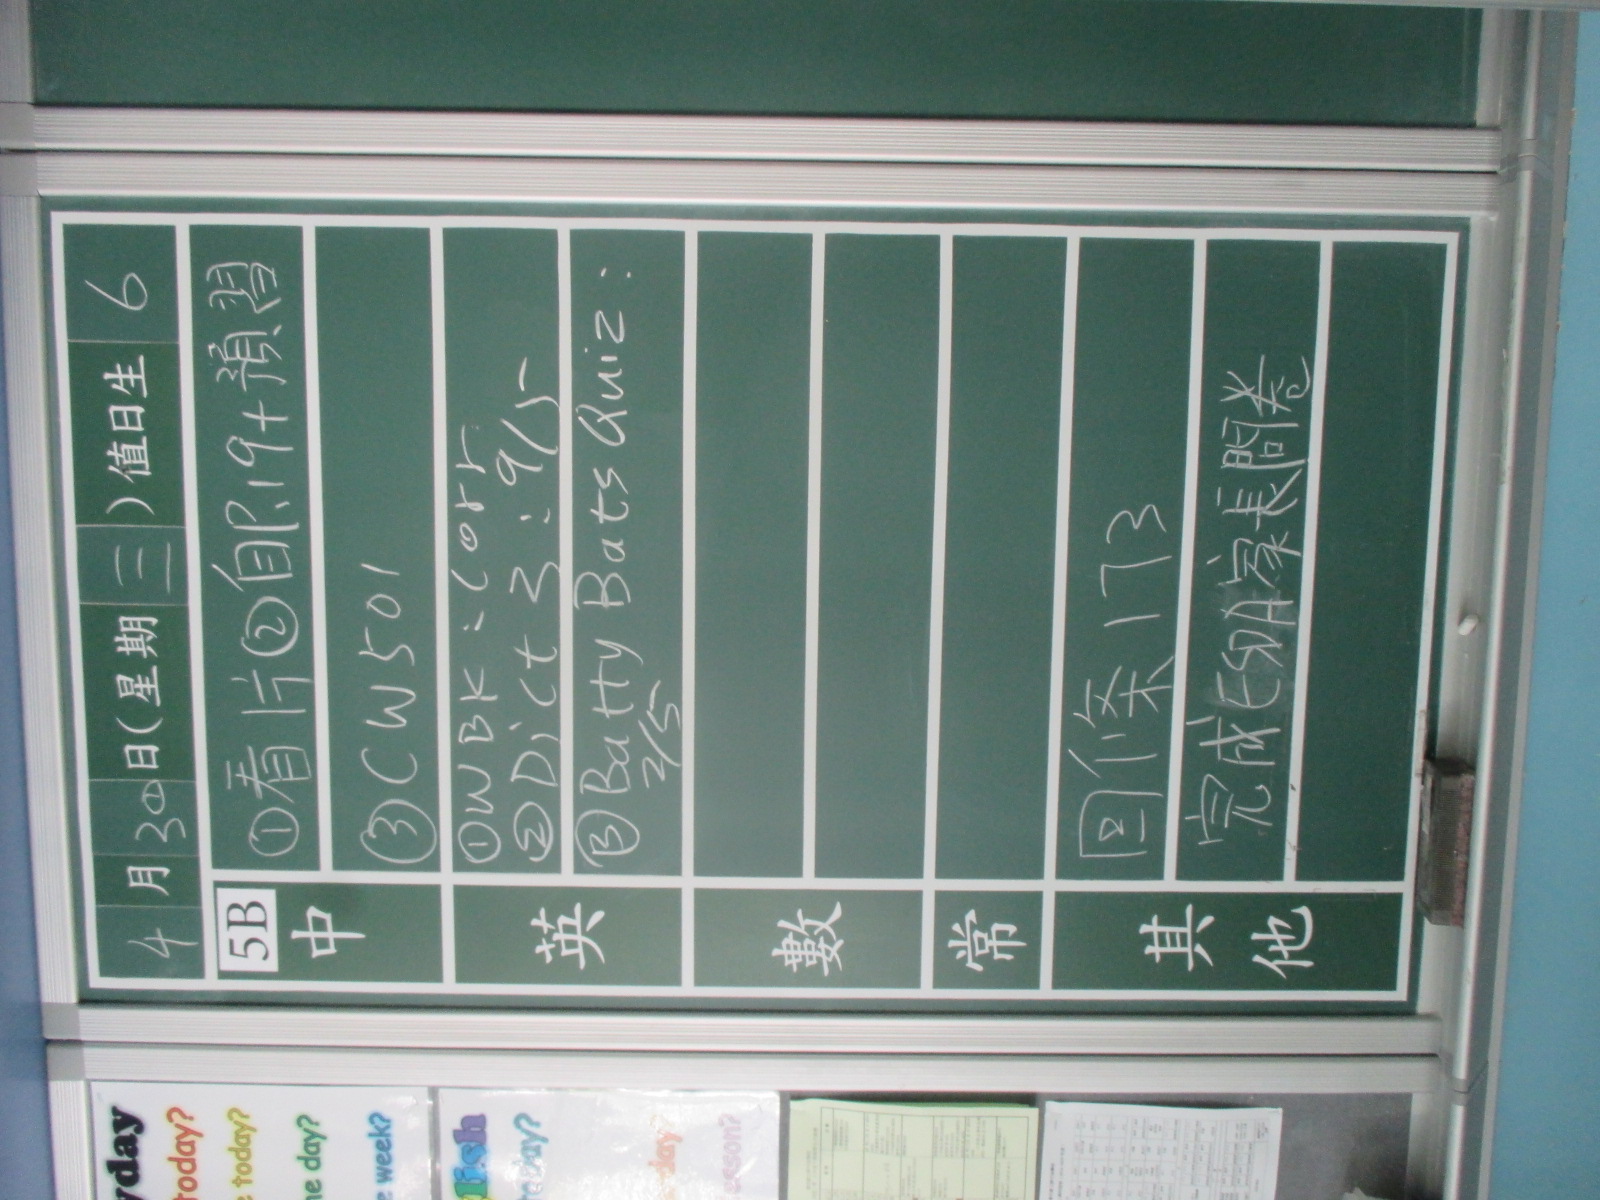 4月30日(星期三)值日生 6
5B
中
①看片②自P.19+預習
③CW501
英
①WBK:Corr
②Dict 3:9/5
③Batty Bats Quiz:
2/5
數
常
其他
回條173
完成ESDA家長問卷
yday
today?
e today?
he day?
e week?
lish
today?
day?
esson?